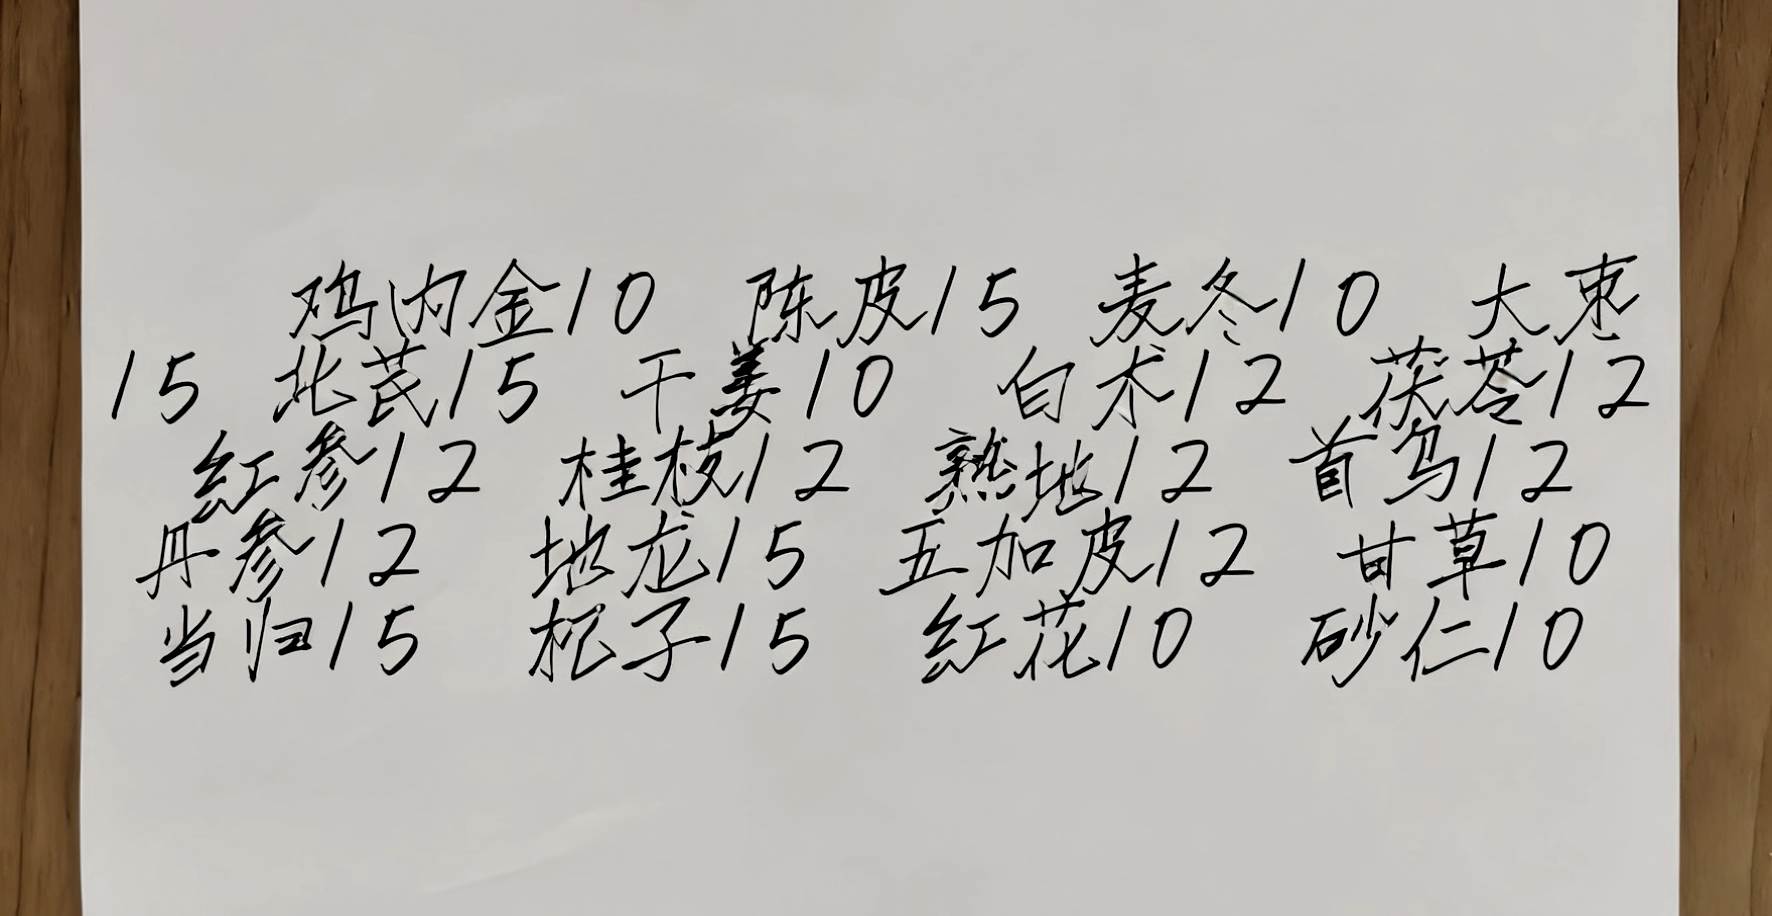 鸡内金10 陈皮15 麦冬10 大枣
15 北芪15 干姜10 白术12 茯苓12
红参12 桂枝12 熟地12 首乌12
丹参12 地龙15 五加皮12 甘草10
当归15 杞子15 红花10 砂仁10